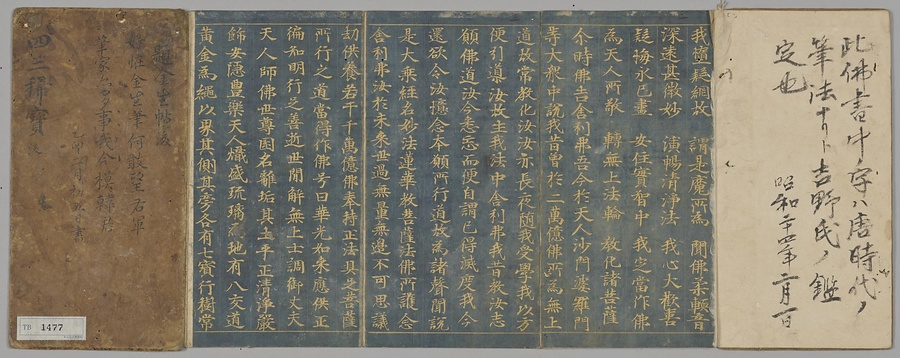 此佛書中ノ字ハ唐時代ノ
筆法ナリト吉野氏ノ鑑
定也
昭和二十四年二月一日
我墮疑網故 謂是魔所為 聞佛柔軟音
深遠甚微妙 演暢清淨法 我心大歡喜
疑悔永已盡 安住實智中 我定當作佛
為天人所敬 轉無上法輪 教化諸菩薩
尒時佛告舍利弗吾今於天人沙門婆羅門
等大衆中說我昔曾於二萬億佛所為無上
道故常教化汝汝亦長夜隨我受學我以方
便引導汝故生我法中舍利弗我昔教汝志
願佛道汝今悉忘而便自謂已得滅度我今
還欲令汝憶念本願所行道故為諸聲聞說
是大乘經名妙法蓮華教菩薩法佛所護念
舍利弗汝於未來世過無量無邊不可思議
劫供養若干千萬億佛奉持正法具足菩薩
所行之道當得作佛号曰華光如来應供正
徧知明行足善逝世間解無上士調御丈夫
天人師佛世尊國名離垢其土平正清淨嚴
飾安隱豊樂天人熾盛琉璃為地有八交道
黃金為繩以界其側其傍各有七寶行樹常
望右軍
事我今
四三稀寶
TB 1477